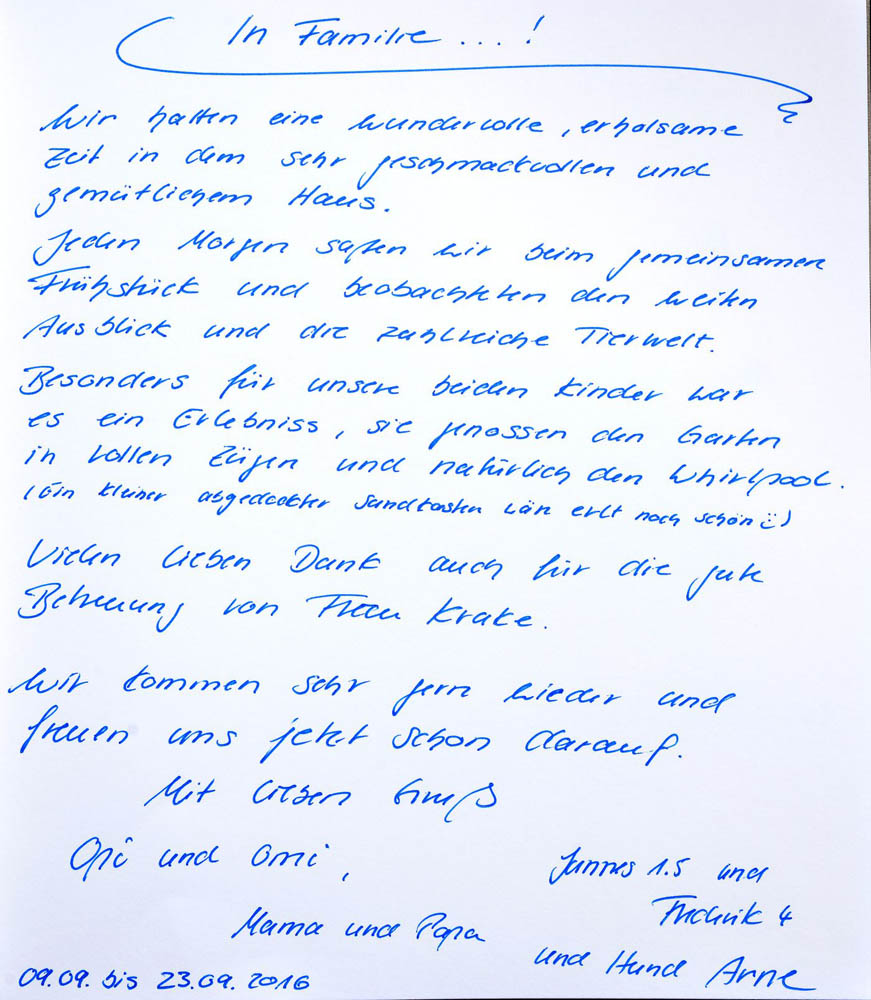 In Familie ... !
Wir hatten eine wundervolle, erholsame
Zeit in dem sehr geschmackvollen und
gemütlichem Haus.
Jeden Morgen saßen wir beim gemeinsamen
Frühstück und beobachteten den weiten
Ausblick und die zahlreiche Tierwelt.
Besonders für unsere beiden Kinder war
es ein Erlebniss, sie genossen den Garten
in vollen Zügen und natürlich den Whirlpool.
(Ein kleiner abgedeckter Sandkasten wär evtl noch schön☺)
Vielen lieben Dank auch für die gute
Betreuung von Frau Krake.
Wir kommen sehr gern wieder und
freuen uns jetzt schon darauf.
Mit lieben Gruß
Opi und Omi,
Mama und Papa
Jannes 1.5 und
Fredrik 4
und Hund Arne
09.09. bis 23.09.2016